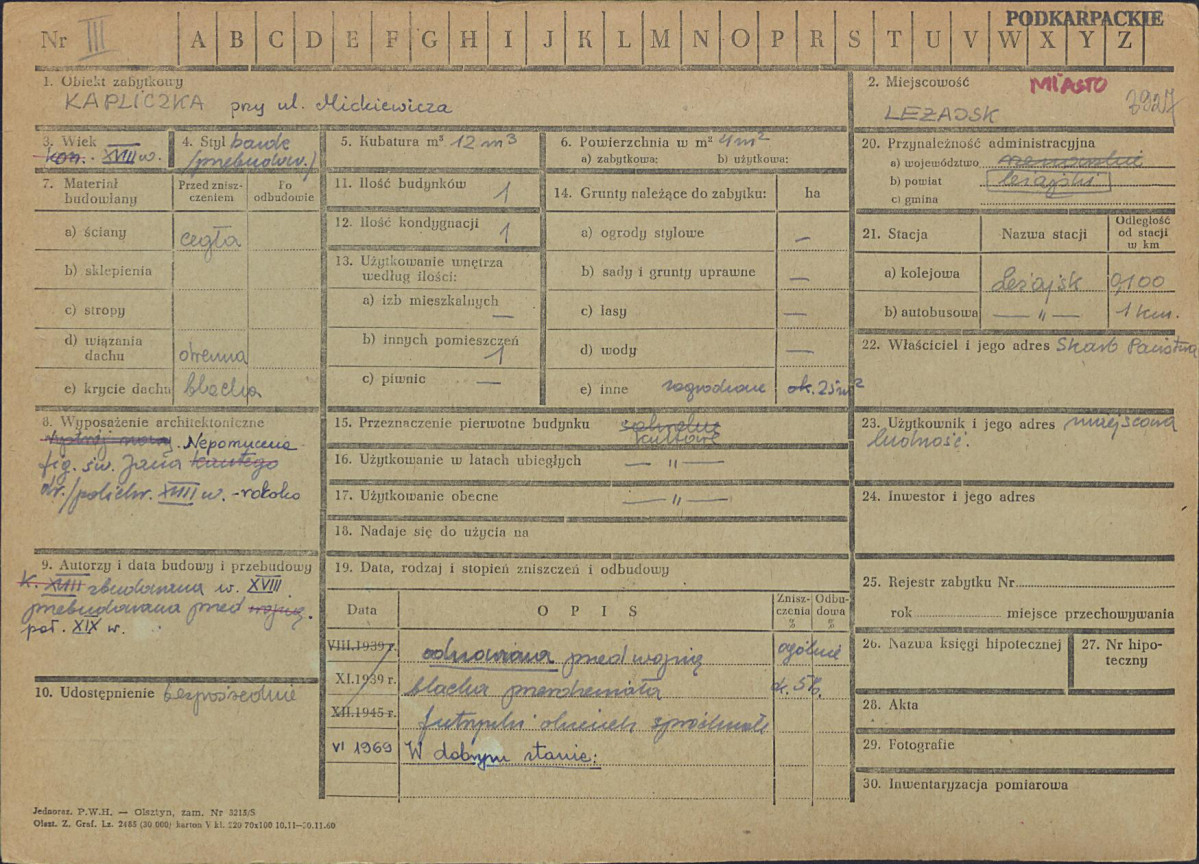 PODKARPACKIE
Nr III A B C D E F G H I J K L M N O P R S T U V W X Y Z
1. Obiekt zabytkowy
KAPLICZKA przy ul. Mickiewicza
2. Miejscowość MIASTO
LEŻAJSK
3. Wiek
kon. XVIII w.
4. Styl barok
/przebudow./
5. Kubatura m³ 12 m³
6. Powierzchnia w m² 4 m²
a) zabytkowa: b) użytkowa:
7. Materiał budowlany
Przed zniszczeniem
Po odbudowie
a) ściany cegła
b) sklepienia
c) stropy
d) wiązania dachu drewna
e) krycie dachu blacha
8. Wyposażenie architektoniczne
Nepomucena
fig. św. Jana Kantego
dr./polichr. XVIII w. - rokoko
9. Autorzy i data budowy i przebudowy
K. XVIII zbudowana w. XVIII.
przebudowana przed wojną.
poł. XIX w.
10. Udostępnienie bezpośrednie
11. Ilość budynków 1
12. Ilość kondygnacji 1
13. Użytkowanie wnętrza
według ilości:
a) izb mieszkalnych —
b) innych pomieszczeń 1
c) piwnic —
14. Grunty należące do zabytku: ha
a) ogrody stylowe —
b) sady i grunty uprawne —
c) lasy —
d) wody —
e) inne zagrodzone ok. 25 m²
15. Przeznaczenie pierwotne budynku sakralne
kultowe
16. Użytkowanie w latach ubiegłych — " —
17. Użytkowanie obecne — " —
18. Nadaje się do użycia na
19. Data, rodzaj i stopień zniszczeń i odbudowy
Data OPIS Zniszczenia % Odbudowa %
VIII.1939 r. odnowiona przed wojną ogólnie
XI.1939 r. blacha przerdzewiała
XII.1945 r. spróchniałe
VI 1969 W dobrym stanie:
20. Przynależność administracyjna
a) województwo rzeszowskie
b) powiat leżajski
c) gmina
21. Stacja Nazwa stacji Odległość od stacji w km
a) kolejowa Leżajsk 0,100
b) autobusowa — " — 1 km.
22. Właściciel i jego adres Skarb Państwa
23. Użytkownik i jego adres miejscowa
ludność.
24. Inwestor i jego adres
25. Rejestr zabytku Nr
rok miejsce przechowywania
26. Nazwa księgi hipotecznej
27. Nr hipoteczny
28. Akta
29. Fotografie
30. Inwentaryzacja pomiarowa
Jednoraz. P.W.H. — Olsztyn, zam. Nr 3215/S
Olszt. Z. Graf. Lz. 2485 (30 000) karton V kl. 220 70x100 10.11—30.11.60